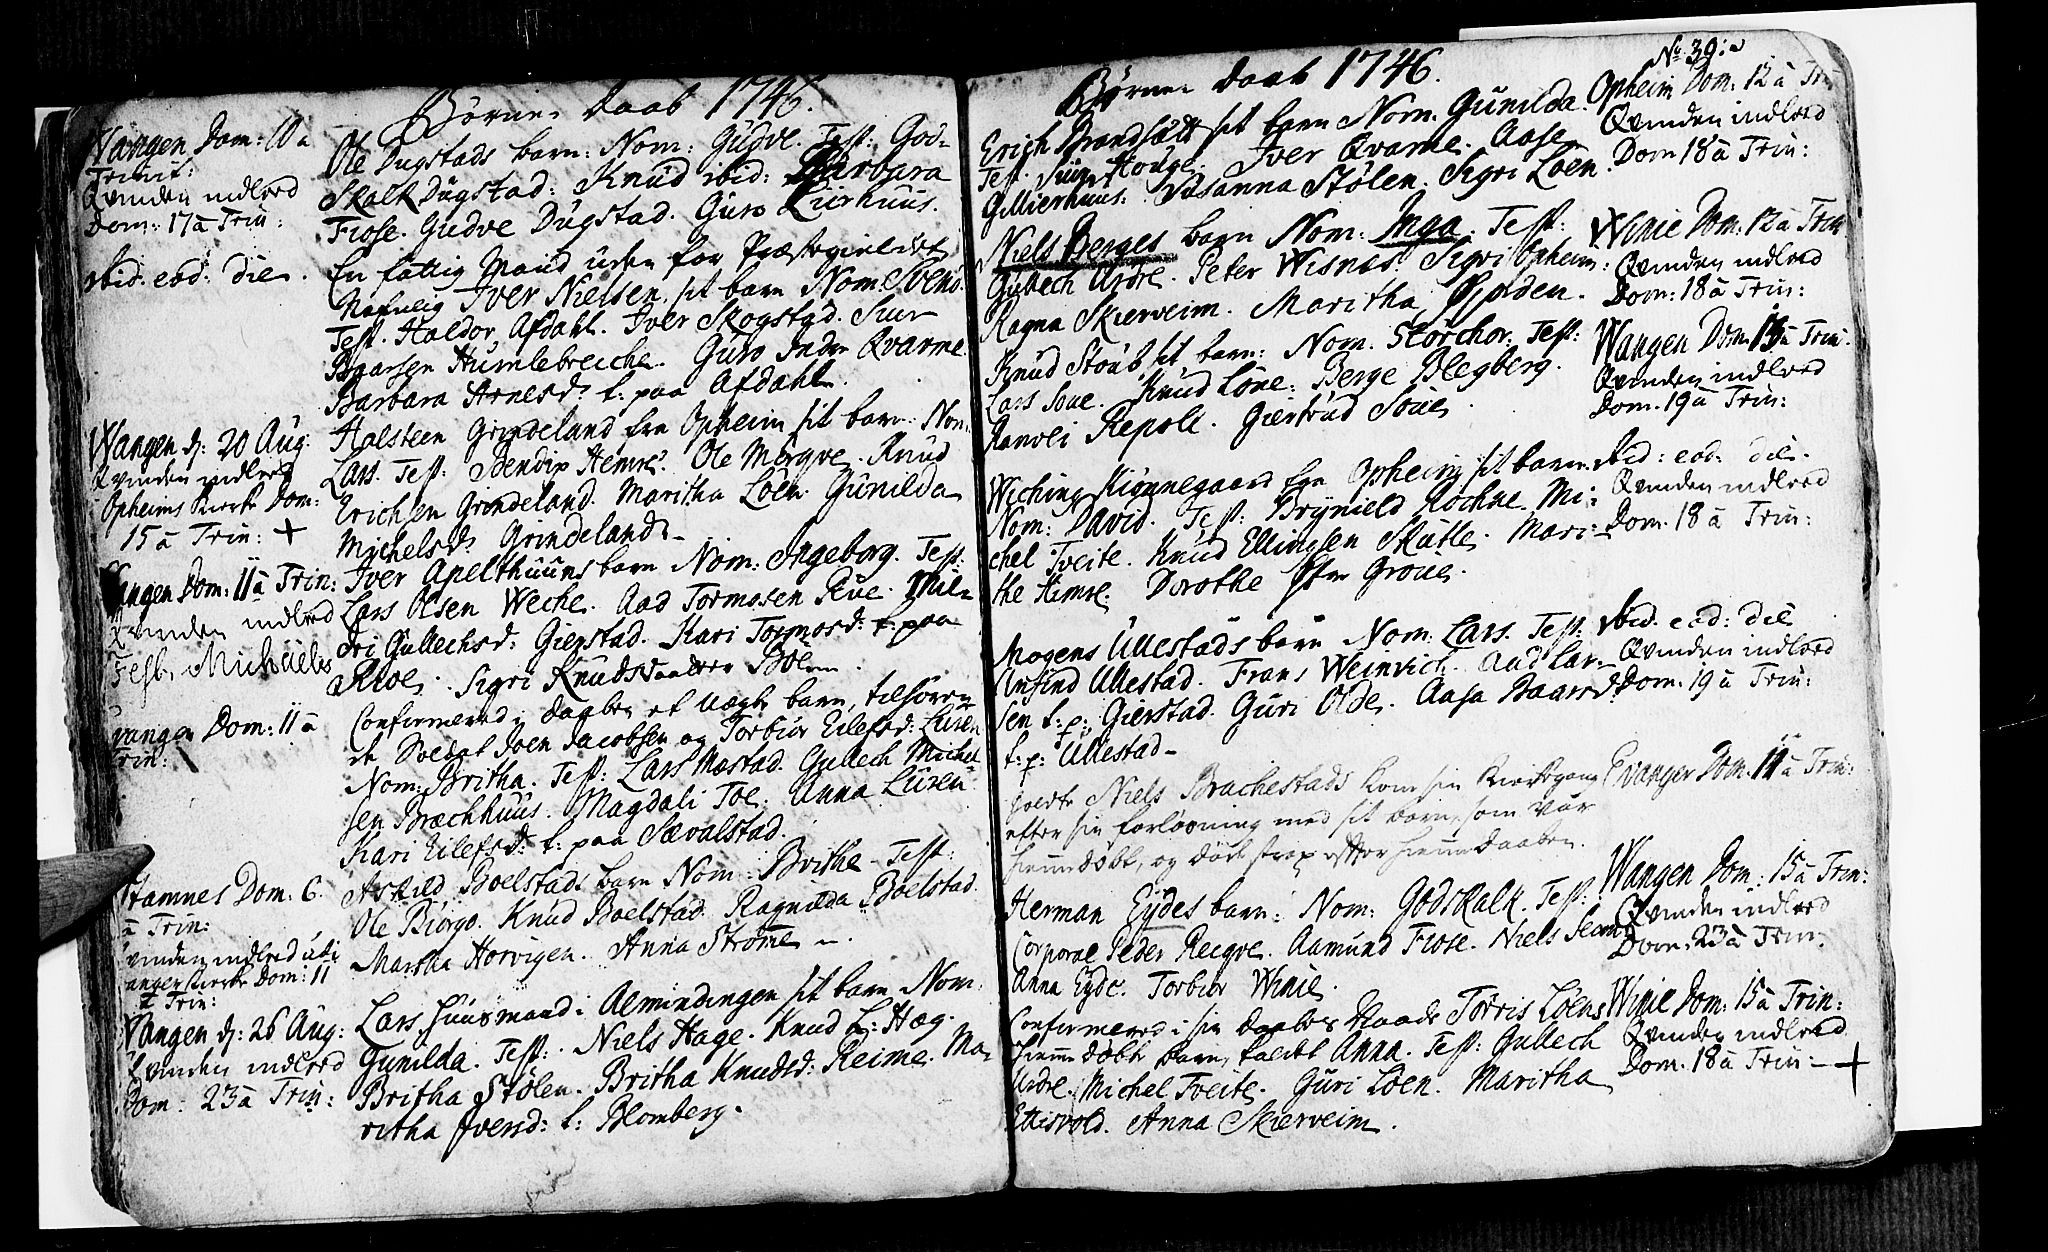 Børne Daab 1746.
Wangen Dom: 10 a
Trinit:
Qvinden indleed
Dom: 17 a Trin:
Ole Dugstads barn: Nom: Gudve. Test: God-
skalk Dugstad: Knud ibid: Barbara
Fiose. Gudve Dugstad. Guro Lirhuus.
ibid. eod: die.
En fattig Mand uden for Præstegieldet
Nafnlig Iver Nielsen. sit barn Nom. Svend.
Test. Haldor Afdahl. Iver Skogstad. Siur
Baarsen Humlebrecke. Guro Indre Qvarme.
Barbara Arnesd: t: paa Afdahl.
Wangen d: 20 Aug:
Qvinden indleed
Opheims Kierke Dom:
15 a Trin: +
Halsteen Grindeland fra Opheim sit barn: Nom:
Lars. Test: Bendix Hemre. Ole Mørqve. Knud
Erichsen Grindeland. Maritha Løen. Gunilda
Michelsd: Grindeland.
Wangen Dom: 11 a Trin:
Qvinden indleed
Fest. Michaelis
Iver Apelthuuns barn Nom: Ingeborg. Test:
Lars Olsen Weche. Aad Tormosen Rue. Mil-
dri Gullechsd: Gierstad. Kari Tormosd: t: paa
Rioe. Sigri Knudsdaatter Bøen.
Evanger Dom: 11 a
Trin:
Confirmered i Daaben et Uægte barn, tilhøren-
de Soldat Joen Jacobsen og Torbiør Eilefsd: Luren
Nom: Britha. Test: Lars Mestad. Gullech Michel-
sen Brechhuus. Magdali Toe. Anna Luren
Kari Eilefsd: t: paa Sævalstad.
Stamnes Dom. 6.
a Trin:
Qvinden indleed udi
anger Kierke Dom: 11
a Trin:
Askild Boelstads barn Nom: Brithe. Test:
Ole Biørgo. Knud Boelstad. Ragnilda Boelstad.
Martha Horvigen. Anna Strømme.
Wangen d: 26 Aug:
Qvinden indleed
Dom: 23 a Trin:
Lars Huusmand i Almindingen sit barn Nom:
Gunilda. Test: Niels Hage. Knud L: Hæg.
Britha Stølen. Britha Knudsd: Reime. Ma-
ritha Iversd: t: Blomberg.
No 39:
Børne Daab 1746.
Erich Brandsætt sit barn Nom: Gunilda.
Test. Siur Houge. Iver Qvarme. Aase
Gillierhuus. Susanna Stølen. Sigri Løen.
Opheim Dom: 12 a Trin
Qvinden indleed
Dom 18 a Trin:
Niels Berges barn Nom: Inga. Test:
Gullech Urdre. Peter Wisnæs. Sigri Opheim:
Ragna Skierveim. Maritha Fiorden.
Winie Dom: 12 a Trin
Qvinden indleed
Dom: 18 a Trin:
Knud Stous sit barn: Nom. Storchor: Test:
Lars Soue. Knud Løne: Berge Blegberg.
Ranvei Repoll. Giertrud Soue.
Wangen Dom. 13 a Trin.
Qvinden indleed
Dom. 19 a Trin:
Wiching Kiønnegaard fra Opheim sit barn.
Nom: David. Test: Brynield Rochne. Mi-
chel Tveite. Knud Ellingsen Skutle. Mari-
the Himre. Dorothe Groue.
ibid: eod: die.
Qvinden indleed
Dom. 18 a Trin:
Mogens Ullestads barn Nom: Lars. Test:
Anfind Ullestad. Frans Weinrich. Aad Lar-
sen t: p: Gierstad. Guri Olde. Aasa Baarsd:
t: p: Ullestad.
ibid. eod: die
Qvinden indleed
Dom: 19 a Trin:
Niels Brachestads kone sin Kierkegang
efter sin forløsning med sit barn, som var
hiemmedøbt, og døde strax efter hiemmedaaben.
Evanger Dom: 11 a Trin:
Herman Eydes barn: Nom: Godskalk. Test:
Corporal Peder Recqve. Aamund Fiose. Niels Seim.
Anna Eyde. Torbiør Winie.
Wangen Dom: 15 a Trin:
Qvinden indleed
Dom: 23 a Trin:
Confirmered i sin Daabes Naade Torris Løens
hiemmedøbte barn, kaldet Anna. Test: Gullech
Urdre. Michel Tveite. Guri Løen. Maritha
Ettesvold. Anna Skierveim.
Winie Dom: 15 a Trin:
Qvinden indleed
Dom. 18 a Trin: +